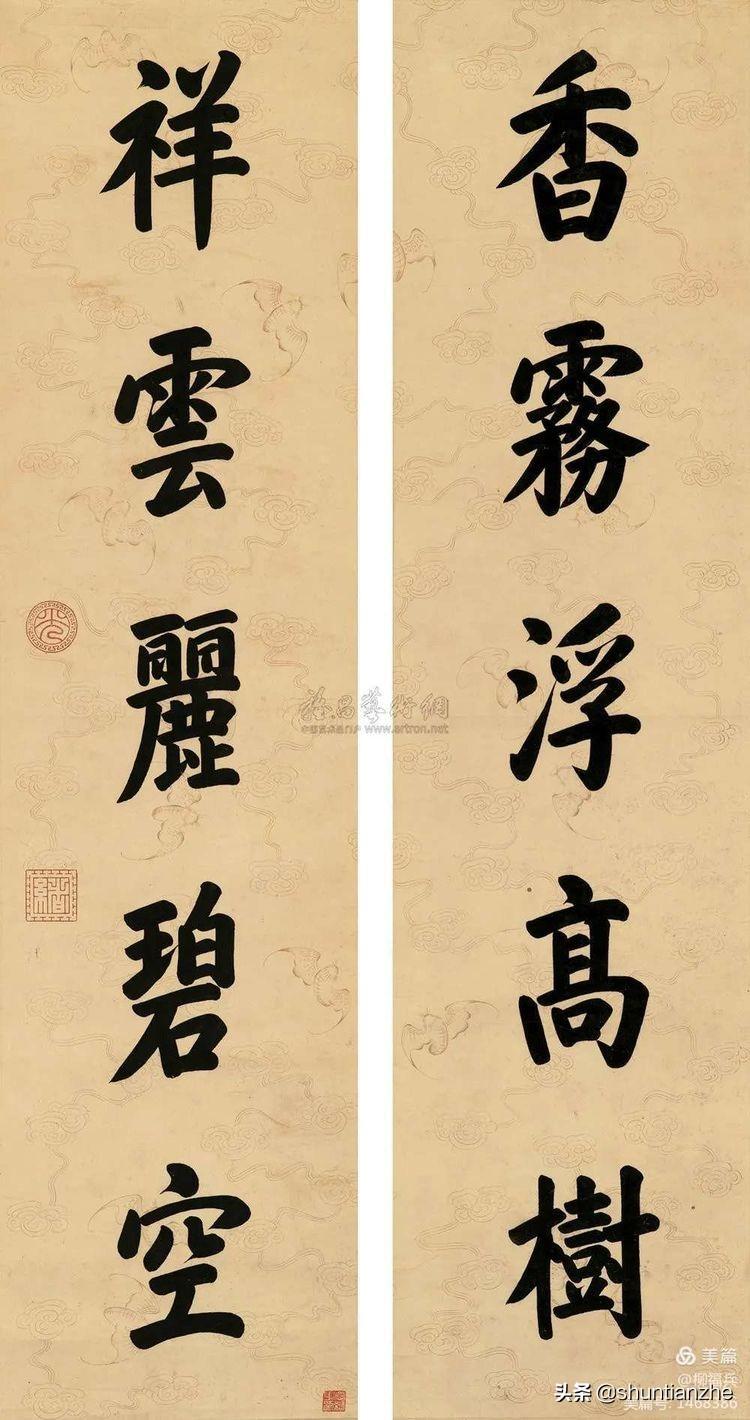 香霧浮高樹
祥雲麗碧空
雅昌藝術網
中国艺术品门户 www.artron.net
美篇
@柳福兵
美篇号: 1468386
头条 @shuntianzhe